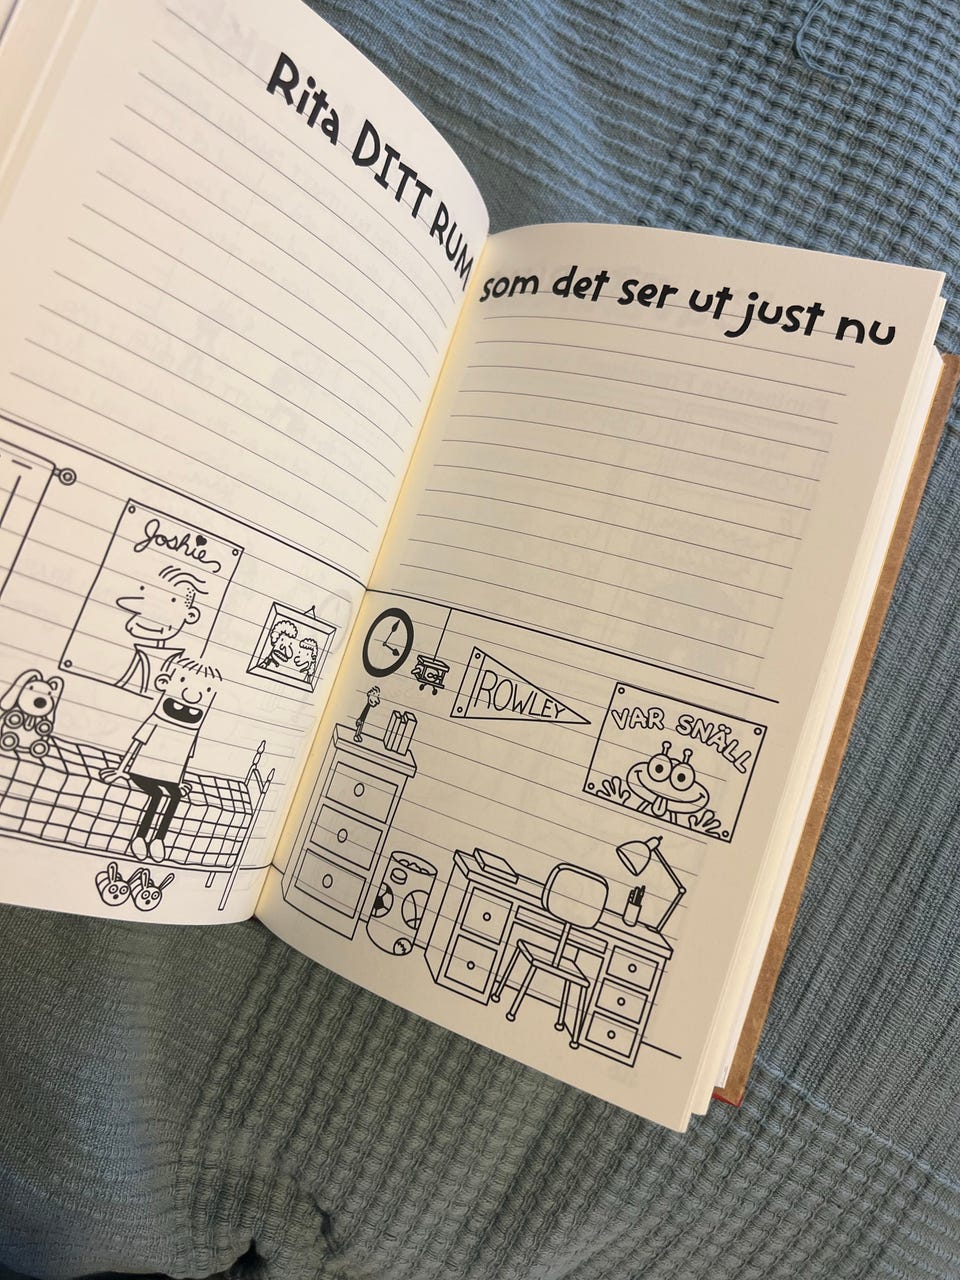 Rita DITT RUM som det ser ut just nu
Joshie
ROWLEY
VAR SNÄLL